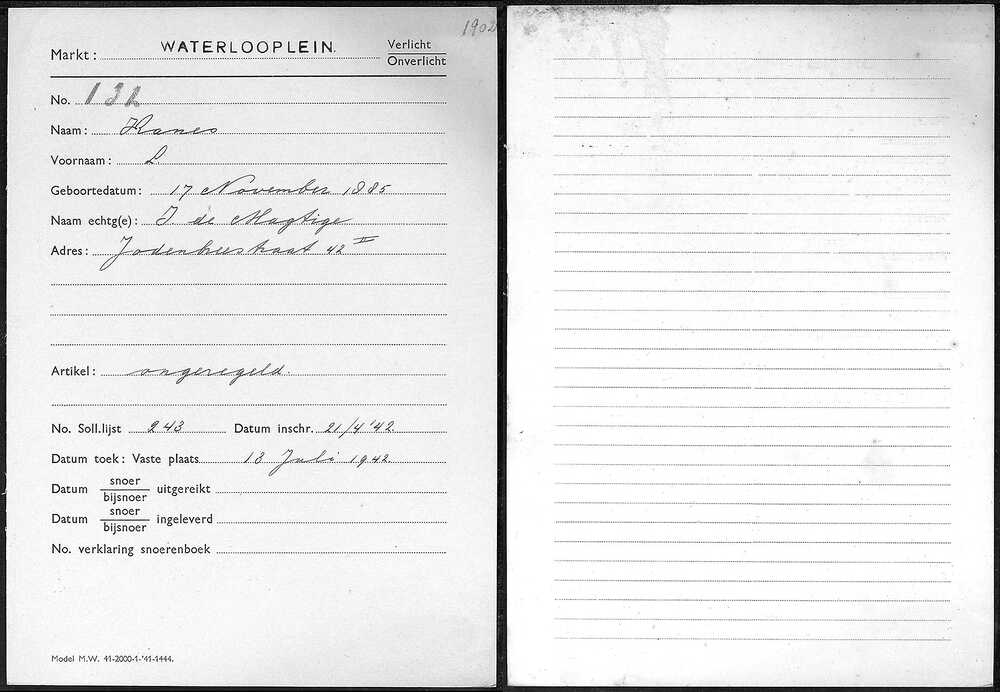 1902
Markt: WATERLOOPLEIN. Verlicht
Onverlicht
No. 132
Naam: Kanes
Voornaam: L
Geboortedatum: 17 November 1885
Naam echtg(e): J de Magtige
Adres: Jodenbreestraat 42 II
Artikel: ongeregeld.
No. Soll.lijst 243 Datum inschr. 21/4 '42.
Datum toek: Vaste plaats 13 Juli 1942.
Datum snoer uitgereikt
bijsnoer
Datum snoer ingeleverd
bijsnoer
No. verklaring snoerenboek
Model M.W. 41-2000-1-'41-1444.